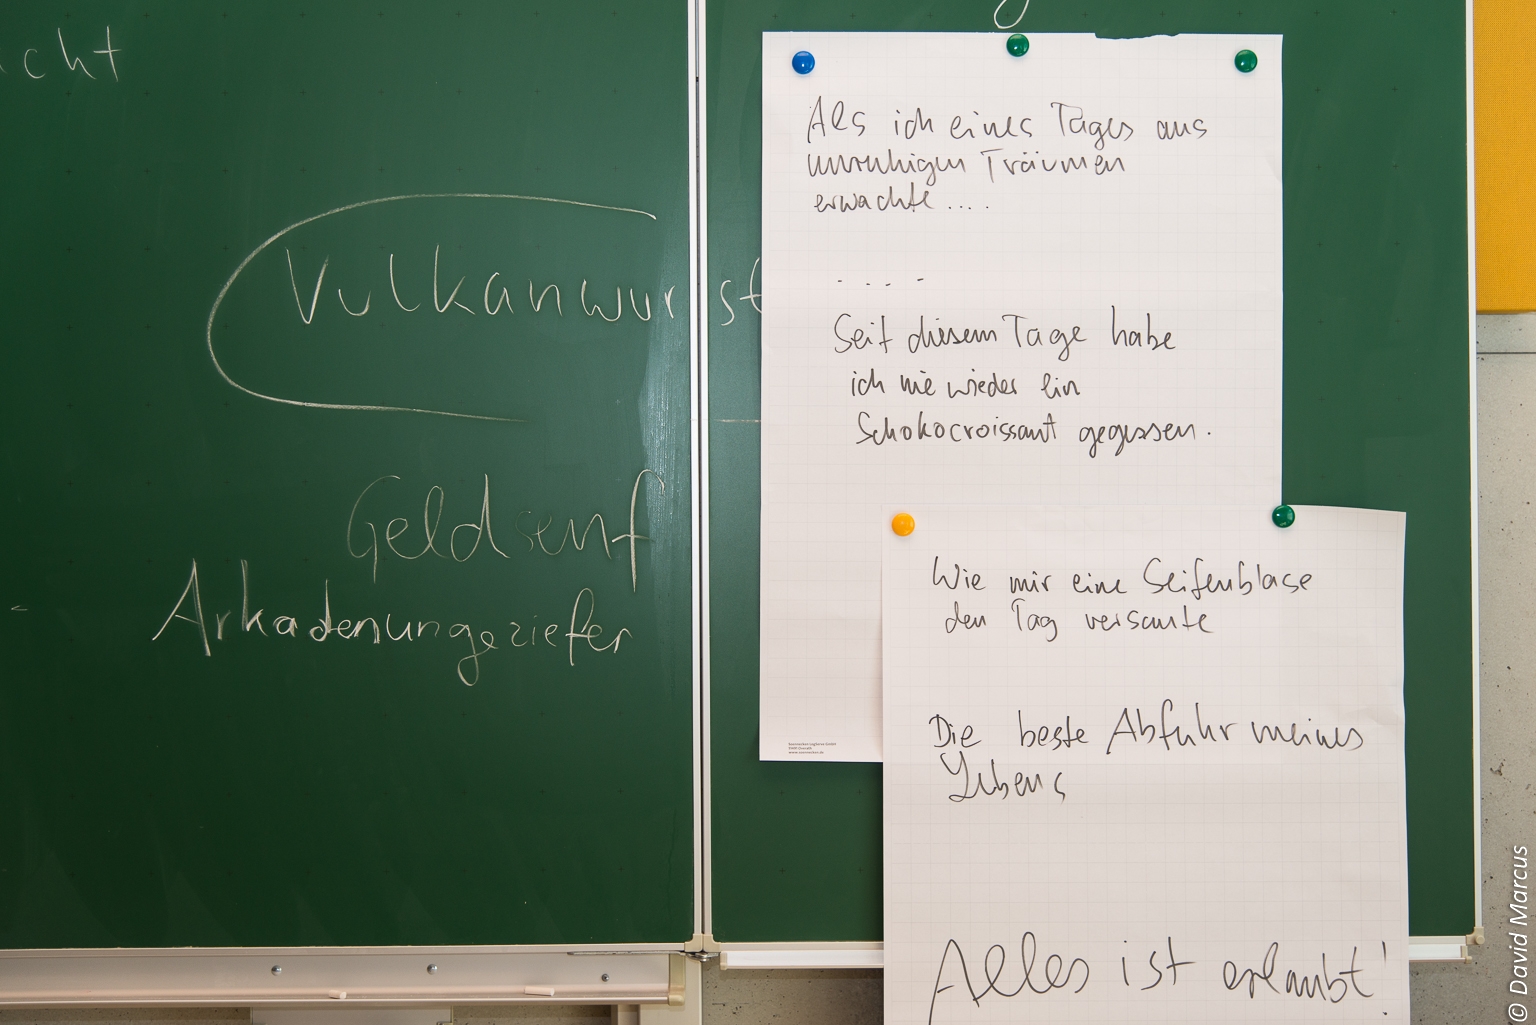 Vulkanwurst
Geldsenf
Arkadenungeziefer
Als ich eines Tages aus
unruhigen Träumen
erwachte....
....
Seit diesem Tage habe
ich nie wieder ein
Schokocroissant gegessen.
Wie mir eine Seifenblase
den Tag versaute
Die beste Abfuhr meines
Lebens
Alles ist erlaubt!
© David Marcus